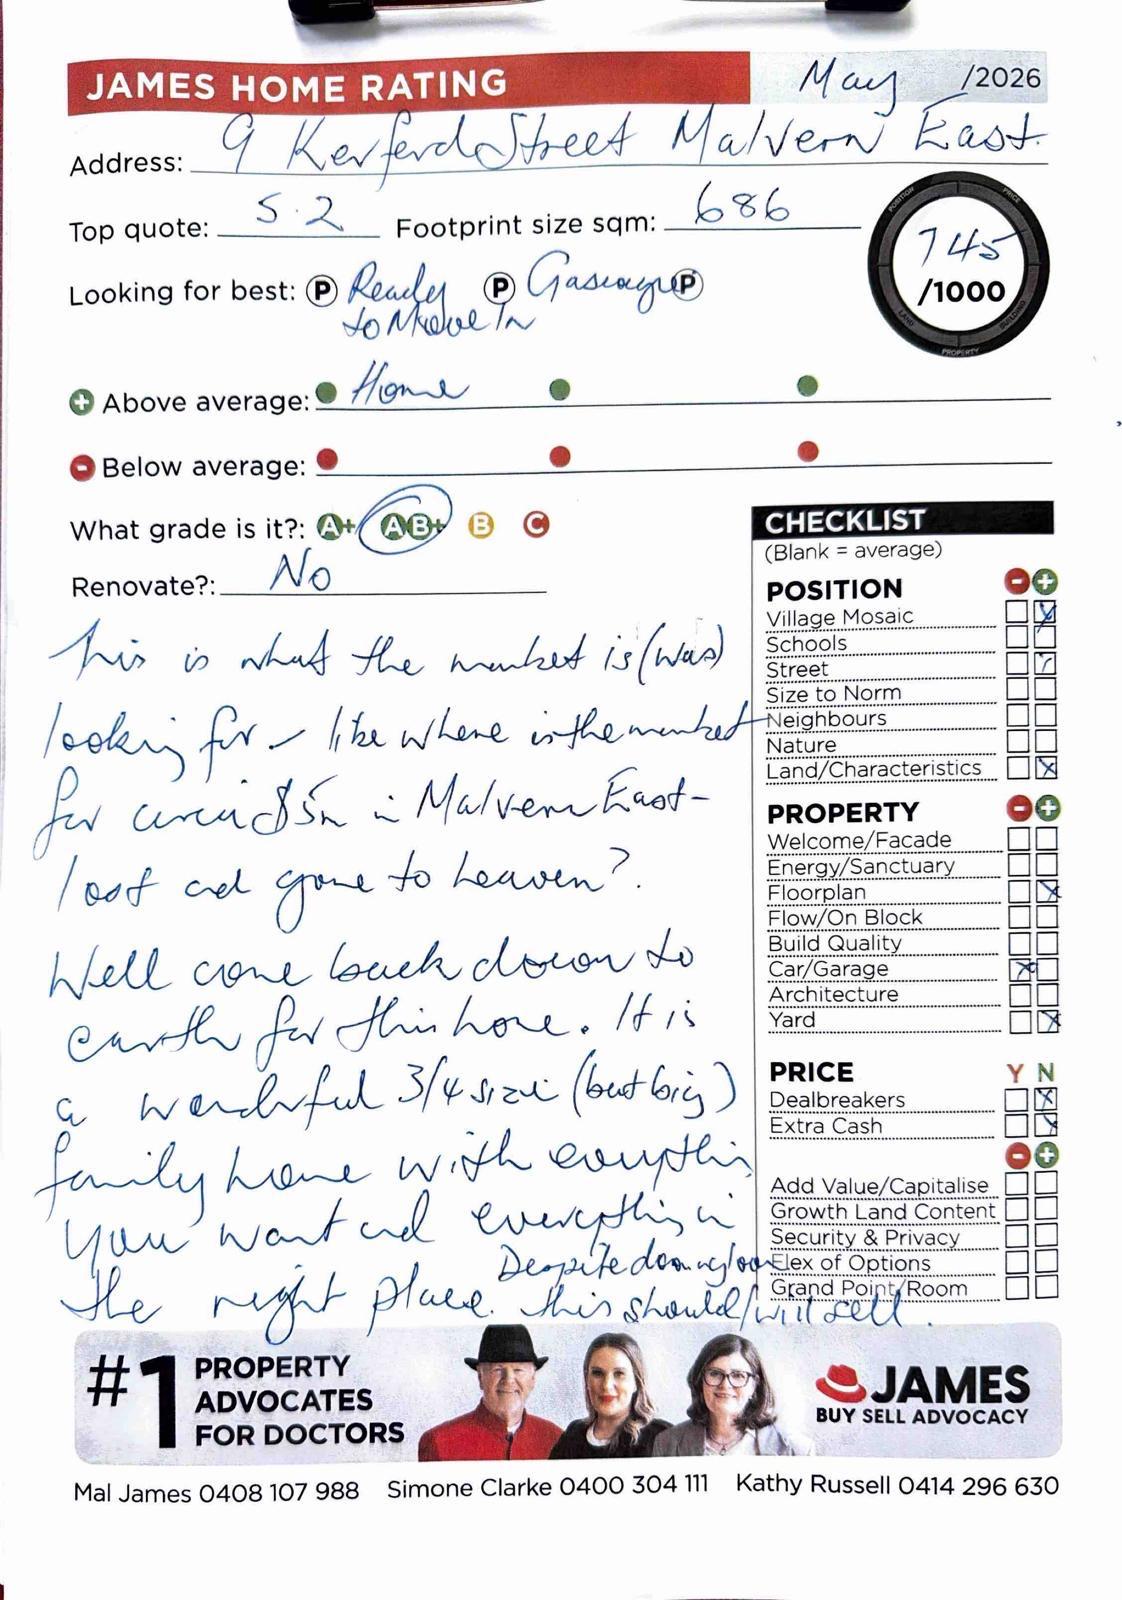 JAMES HOME RATING May /2026
Address: 9 Kerferd Street Malvern East.
Top quote: 5.2 Footprint size sqm: 686
POSITION PRICE BUILDING PROPERTY LAND
745
/1000
Looking for best: P Ready P Gascoyne P
to Move In
Above average: Home
Below average:
What grade is it?: A+ AB+ B C
Renovate?: No
This is what the market is (was)
looking for - like where is the market
for circa $5m in Malvern East -
lost and gone to heaven?
Well come back down to
earth for this home. It is
a wonderful 3/4 size (but big)
family home with everything
you want and everything in
the right place. Despite doom
this should/will sell.
CHECKLIST
(Blank = average)
POSITION - +
Village Mosaic
Schools
Street
Size to Norm
Neighbours
Nature
Land/Characteristics
PROPERTY - +
Welcome/Facade
Energy/Sanctuary
Floorplan
Flow/On Block
Build Quality
Car/Garage
Architecture
Yard
PRICE Y N
Dealbreakers
Extra Cash
- +
Add Value/Capitalise
Growth Land Content
Security & Privacy
Flex of Options
Grand Point/Room
#1 PROPERTY
ADVOCATES
FOR DOCTORS
JAMES
BUY SELL ADVOCACY
Mal James 0408 107 988 Simone Clarke 0400 304 111 Kathy Russell 0414 296 630